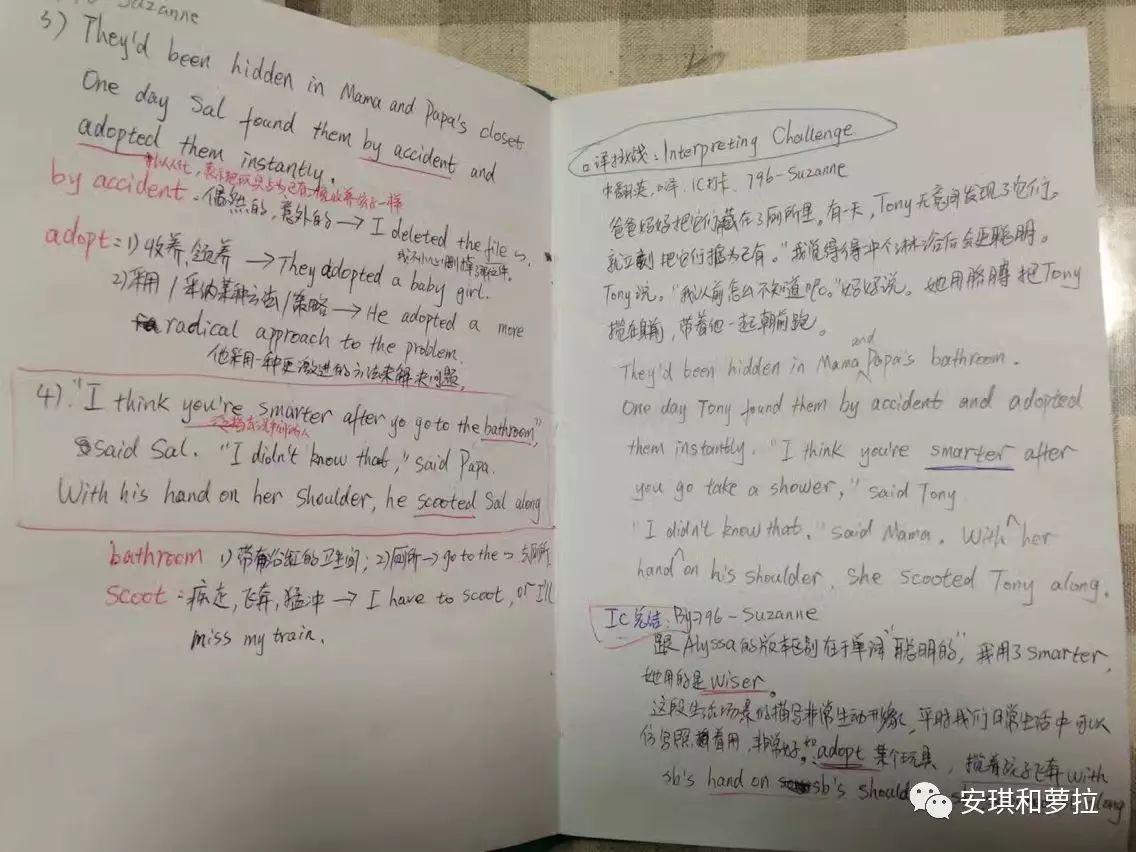 Suzanne
3) They'd been hidden in Mama and Papa's closet
One day Sal found them by accident and
adopted them instantly.
拟人化,表示把玩具占为己有,像收养孩子一样
by accident:偶然的,意外的→ I deleted the file ~.
我不小心删掉了那文件.
adopt:1) 收养,领养 → They adopted a baby girl.
2)采用/采纳某种方法/策略→ He adopted a more
radical approach to the problem.
他采用一种更激进的方法来解决问题.
4). "I think you're smarter after yo go to the bathroom,"
said Sal. "I didn't know that," said Papa.
With his hand on her shoulder, he scooted Sal along
bathroom 1)带有浴缸的卫生间; 2)厕所→ go to the ~ 去厕所.
scoot:疾走,飞奔,猛冲 → I have to scoot, or I'll
miss my train.
口译挑战:Interpreting Challenge
中翻英,口译,IC打卡, 796-Suzanne
爸爸妈妈把它们藏在了厕所里。有一天,Tony无意间发现了它们。
就立刻把它们据为己有。"我觉得冲个淋浴后会更聪明。
Tony说。"我以前怎么不知道呢。"妈妈说。她用胳膊把Tony
揽在身前,带着他一起朝前跑。
They'd been hidden in Mama and Papa's bathroom.
One day Tony found them by accident and adopted
them instantly. "I think you're smarter after
you go take a shower," said Tony.
"I didn't know that." said Mama. With her
hand on his shoulder, she scooted Tony along.
IC总结:By796-Suzanne
跟Alyssa的版本区别在于单词"聪明的",我用了smarter,
她用的是wiser。
这段生活场景的描写非常生动形象,平时我们日常生活中可以
仿写照着用,非常好。如:adopt某个玩具,揽着孩子飞奔with
sb's hand on sb's should
安琪和萝拉